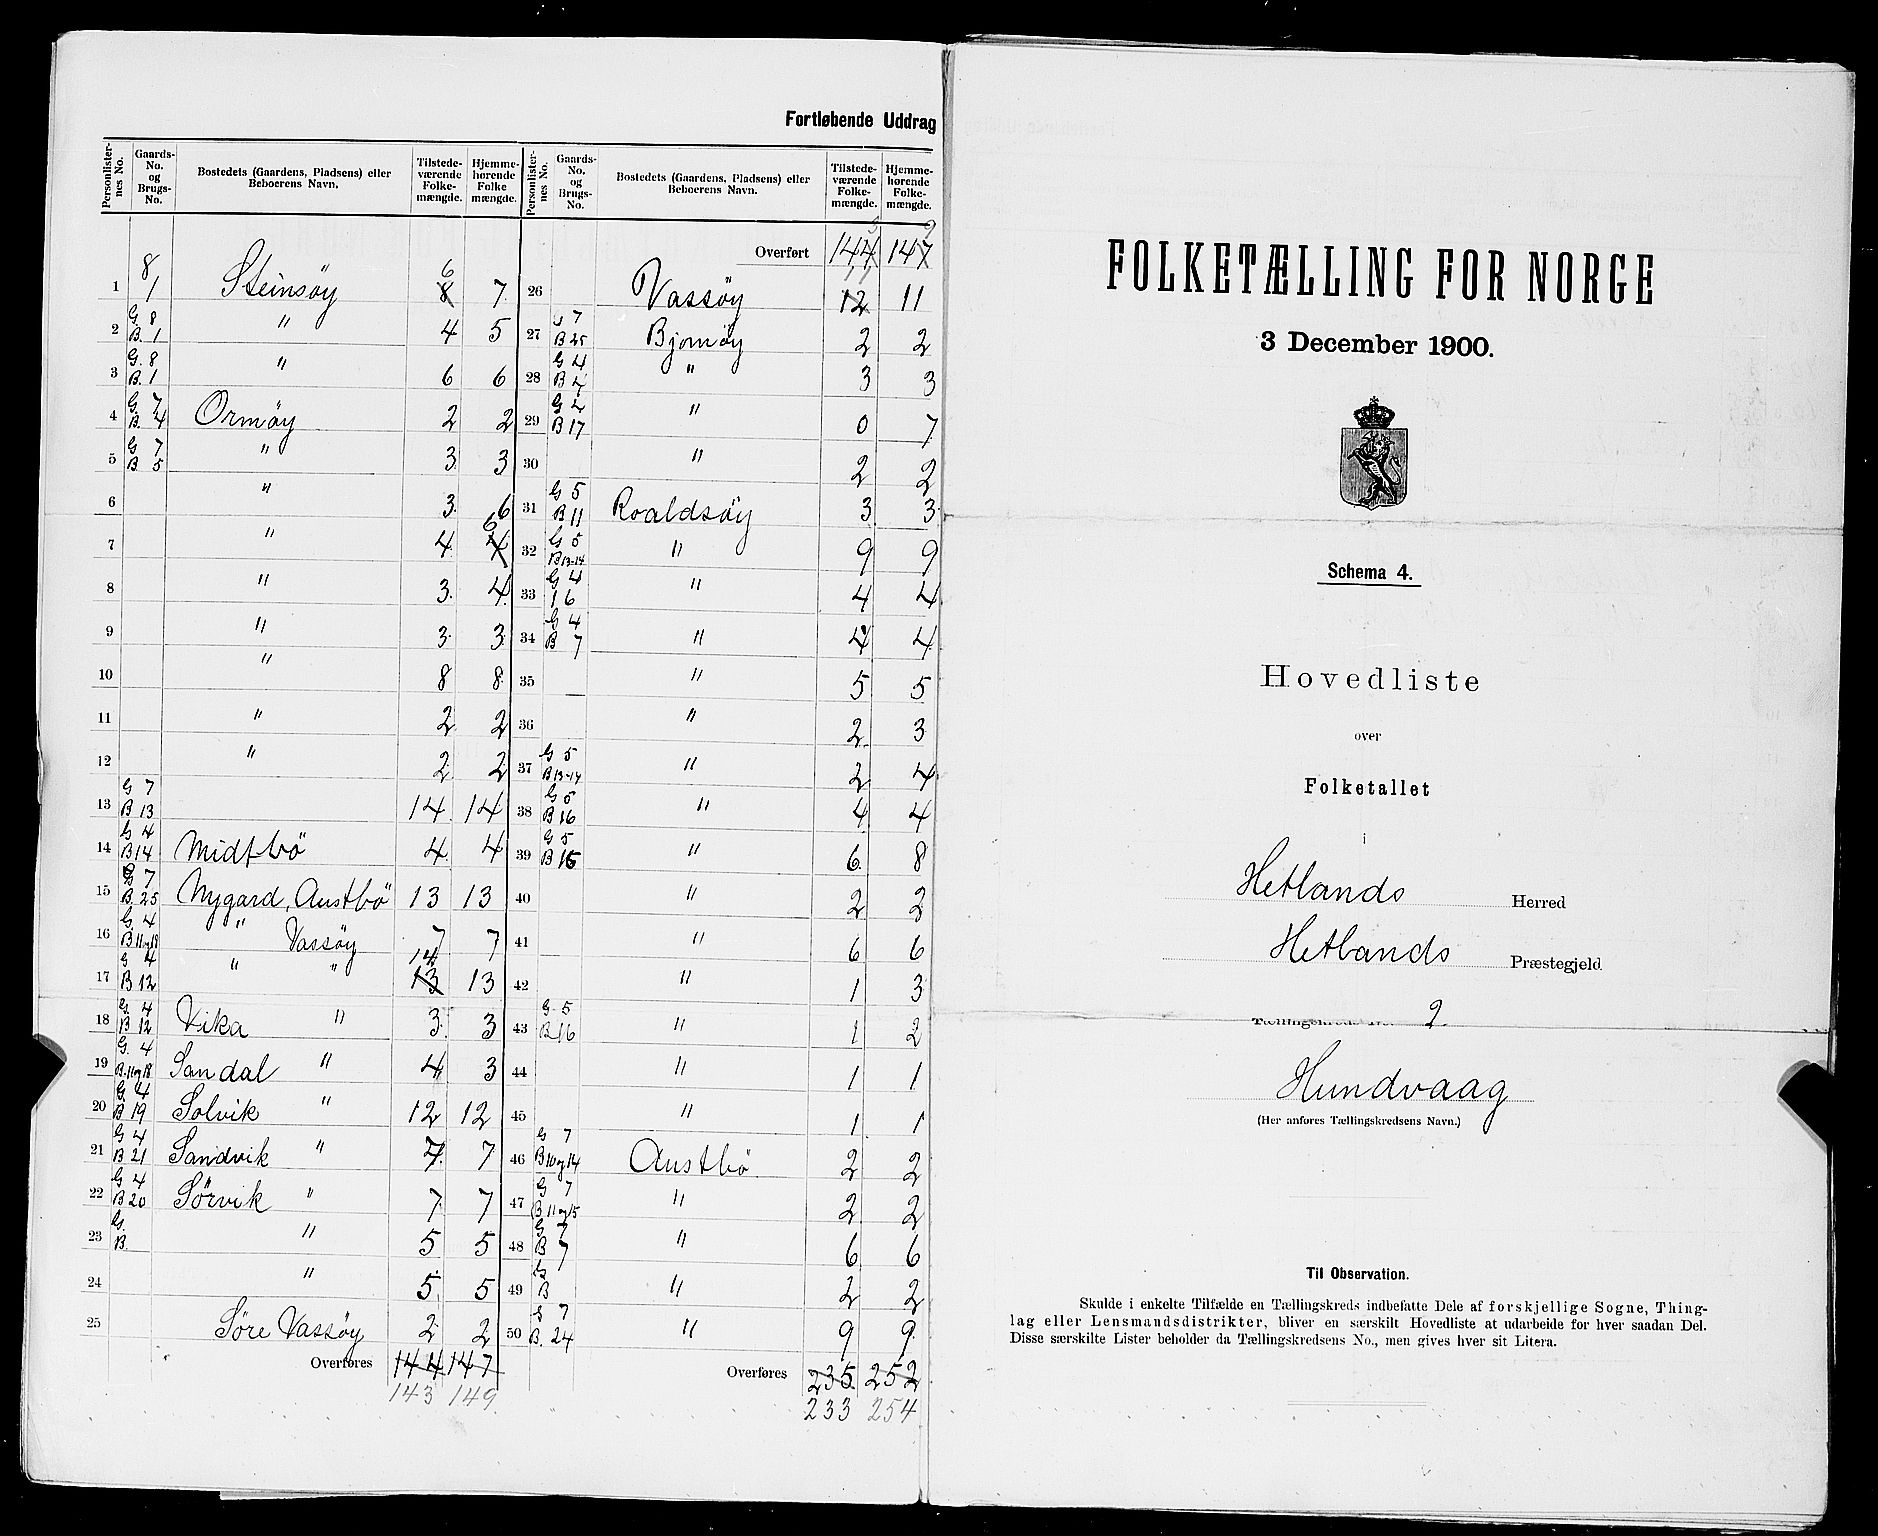 Fortløbende Uddrag
Personlisternes No. Gaards-No. og Brugs-No. Bostedets (Gaardens, Pladsens) eller Beboerens Navn. Tilstedeværende Folkemængde. Hjemmehørende Folkemængde.
1 8/1 Steinsöy 8 6 7
2 G. 8 B. 1 " 4 5
3 G. 8 B. 1 " 6 6
4 G. 7 B. 4 Ormöy 2 2
5 G 7 B. 5 " 3 3
6 " 3 6
7 " 4 4 6
8 " 3 4
9 " 3 3
10 " 8 8
11 " 2 2
12 " 2 2
13 G 7 B 13 14 14
14 G 4 B 14 Midtbö 4 4
15 G 7 B. 25 Nygard, Austbö 13 13
16 G. 4 B 11 og 18 " Vassöy 7 7
17 G 4 B 12 " " 13 14 13
18 G. 4 B 12 Vika " 3 3
19 G. 4 B. 11 og 18 Sandal " 4 3
20 G. 4 B 19 Solvik " 12 12
21 G 4 B 21 Sandvik " 7 7
22 G 4 B 20 Sörvik " 7 7
23 G. B. " 5 5
24 " 5 5
25 Söre Vassöy 2 2
Overføres 144 147
143 149
Personlisternes No. Gaards-No. og Brugs-No. Bostedets (Gaardens, Pladsens) eller Beboerens Navn. Tilstedeværende Folkemængde. Hjemmehørende Folkemængde.
Overført 144 3 147 9
26 Vassöy 12 11 11
27 G 7 B 25 Bjornöy 2 2
28 G 4 B 4 " 3 3
29 G 4 B 17 " 0 7
30 " 2 2
31 G 5 B 11 Roaldsöy 3 3
32 G 5 B 13-14 " 9 9
33 G 4 16 " 4 4
34 G 4 B 7 " 4 4
35 " 5 5
36 " 2 3
37 G 5 B 13-14 " 2 4
38 G 5 B 16 " 4 4
39 G 5 B 15 " 6 8
40 " 2 2
41 " 6 6
42 " 1 3
43 G. 5 B 16 " 1 2
44 " 1 1
45 " 1 1
46 G 7 B 10 og 14 Austbö 2 2
47 G 7 B 11 og 15 " 2 2
48 G 7 B 7 " 6 6
49 G B " 2 2
50 G 7 B. 24 " 9 9
Overføres 235 252
233 254
FOLKETÆLLING FOR NORGE
3 December 1900.
Schema 4.
Hovedliste
over
Folketallet
i
Hetlands Herred
Hetlands Præstegjeld
Tællingskreds No. 2.
Hundvaag
(Her anføres Tællingskredsens Navn.)
Til Observation.
Skulde i enkelte Tilfælde en Tællingskreds indbefatte Dele af forskjellige Sogne, Thing-
lag eller Lensmandsdistrikter, bliver en særskilt Hovedliste at udarbeide for hver saadan Del.
Disse særskilte Lister beholder da Tællingskredsens No., men gives hver sit Litera.